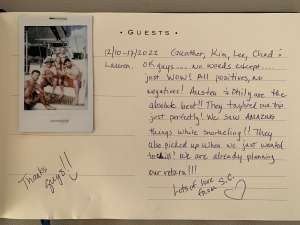 • GUESTS •
12/10-17/2022 Guenther, Kim, Lee, Chad &
Lauren. OK guys.... no words except....
just WOW! All positives, no
negatives! Austen & Emily are the
absolute best!! They taylored our trip
just perfectly! We saw AMAZING
things while snorkeling!! They
also picked up when we just wanted
to chill! We are already planning
our return!!!
Lots of love
from S.C.
Thanks
guys!!